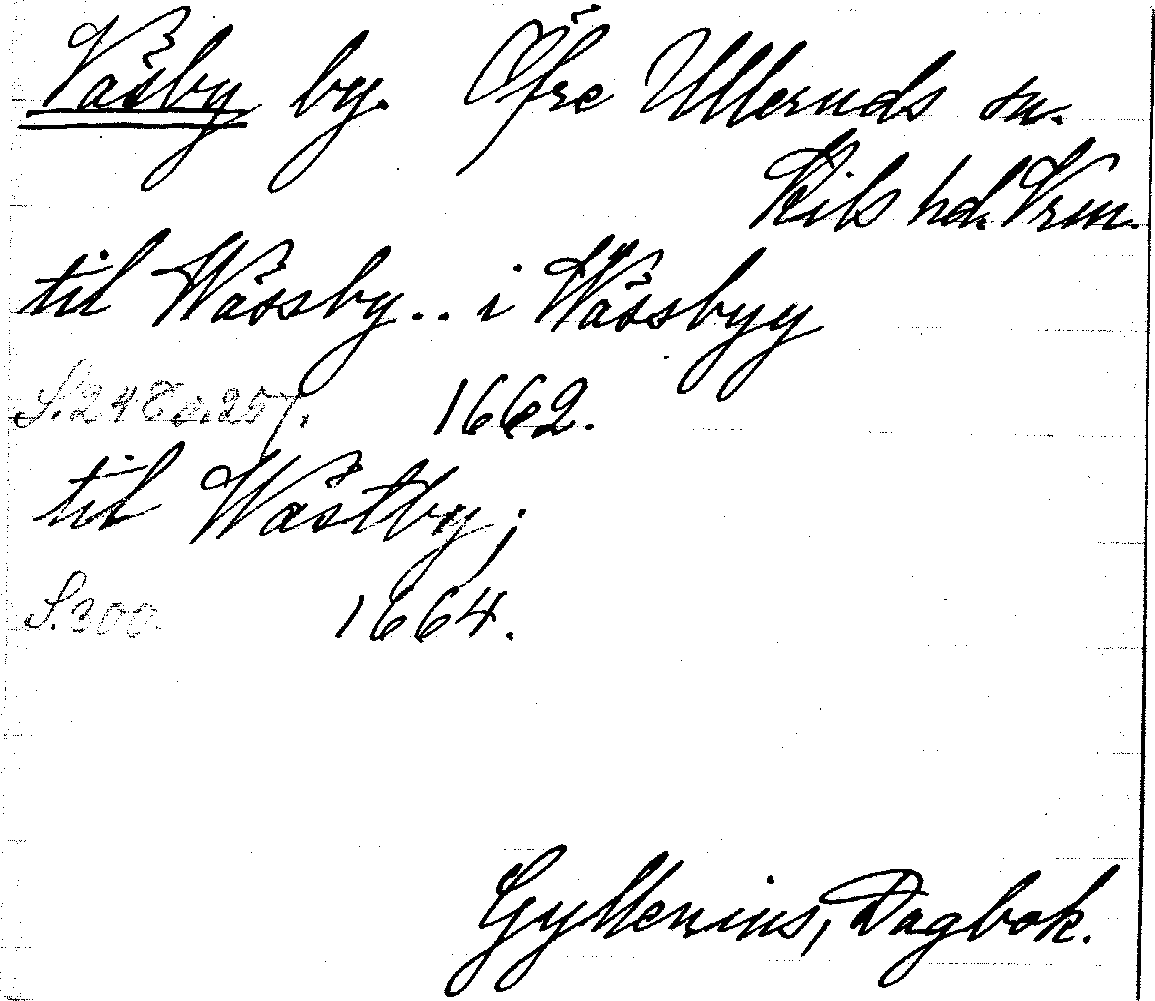 Väsby by. Öfre Ulleruds sn.
Kils hd. Vrm.
til Wäsby.. i Wässbyy
S. 248 o. 257. 1662.
til Wästby;
S. 300. 1664.
Gyllenius, Dagbok.